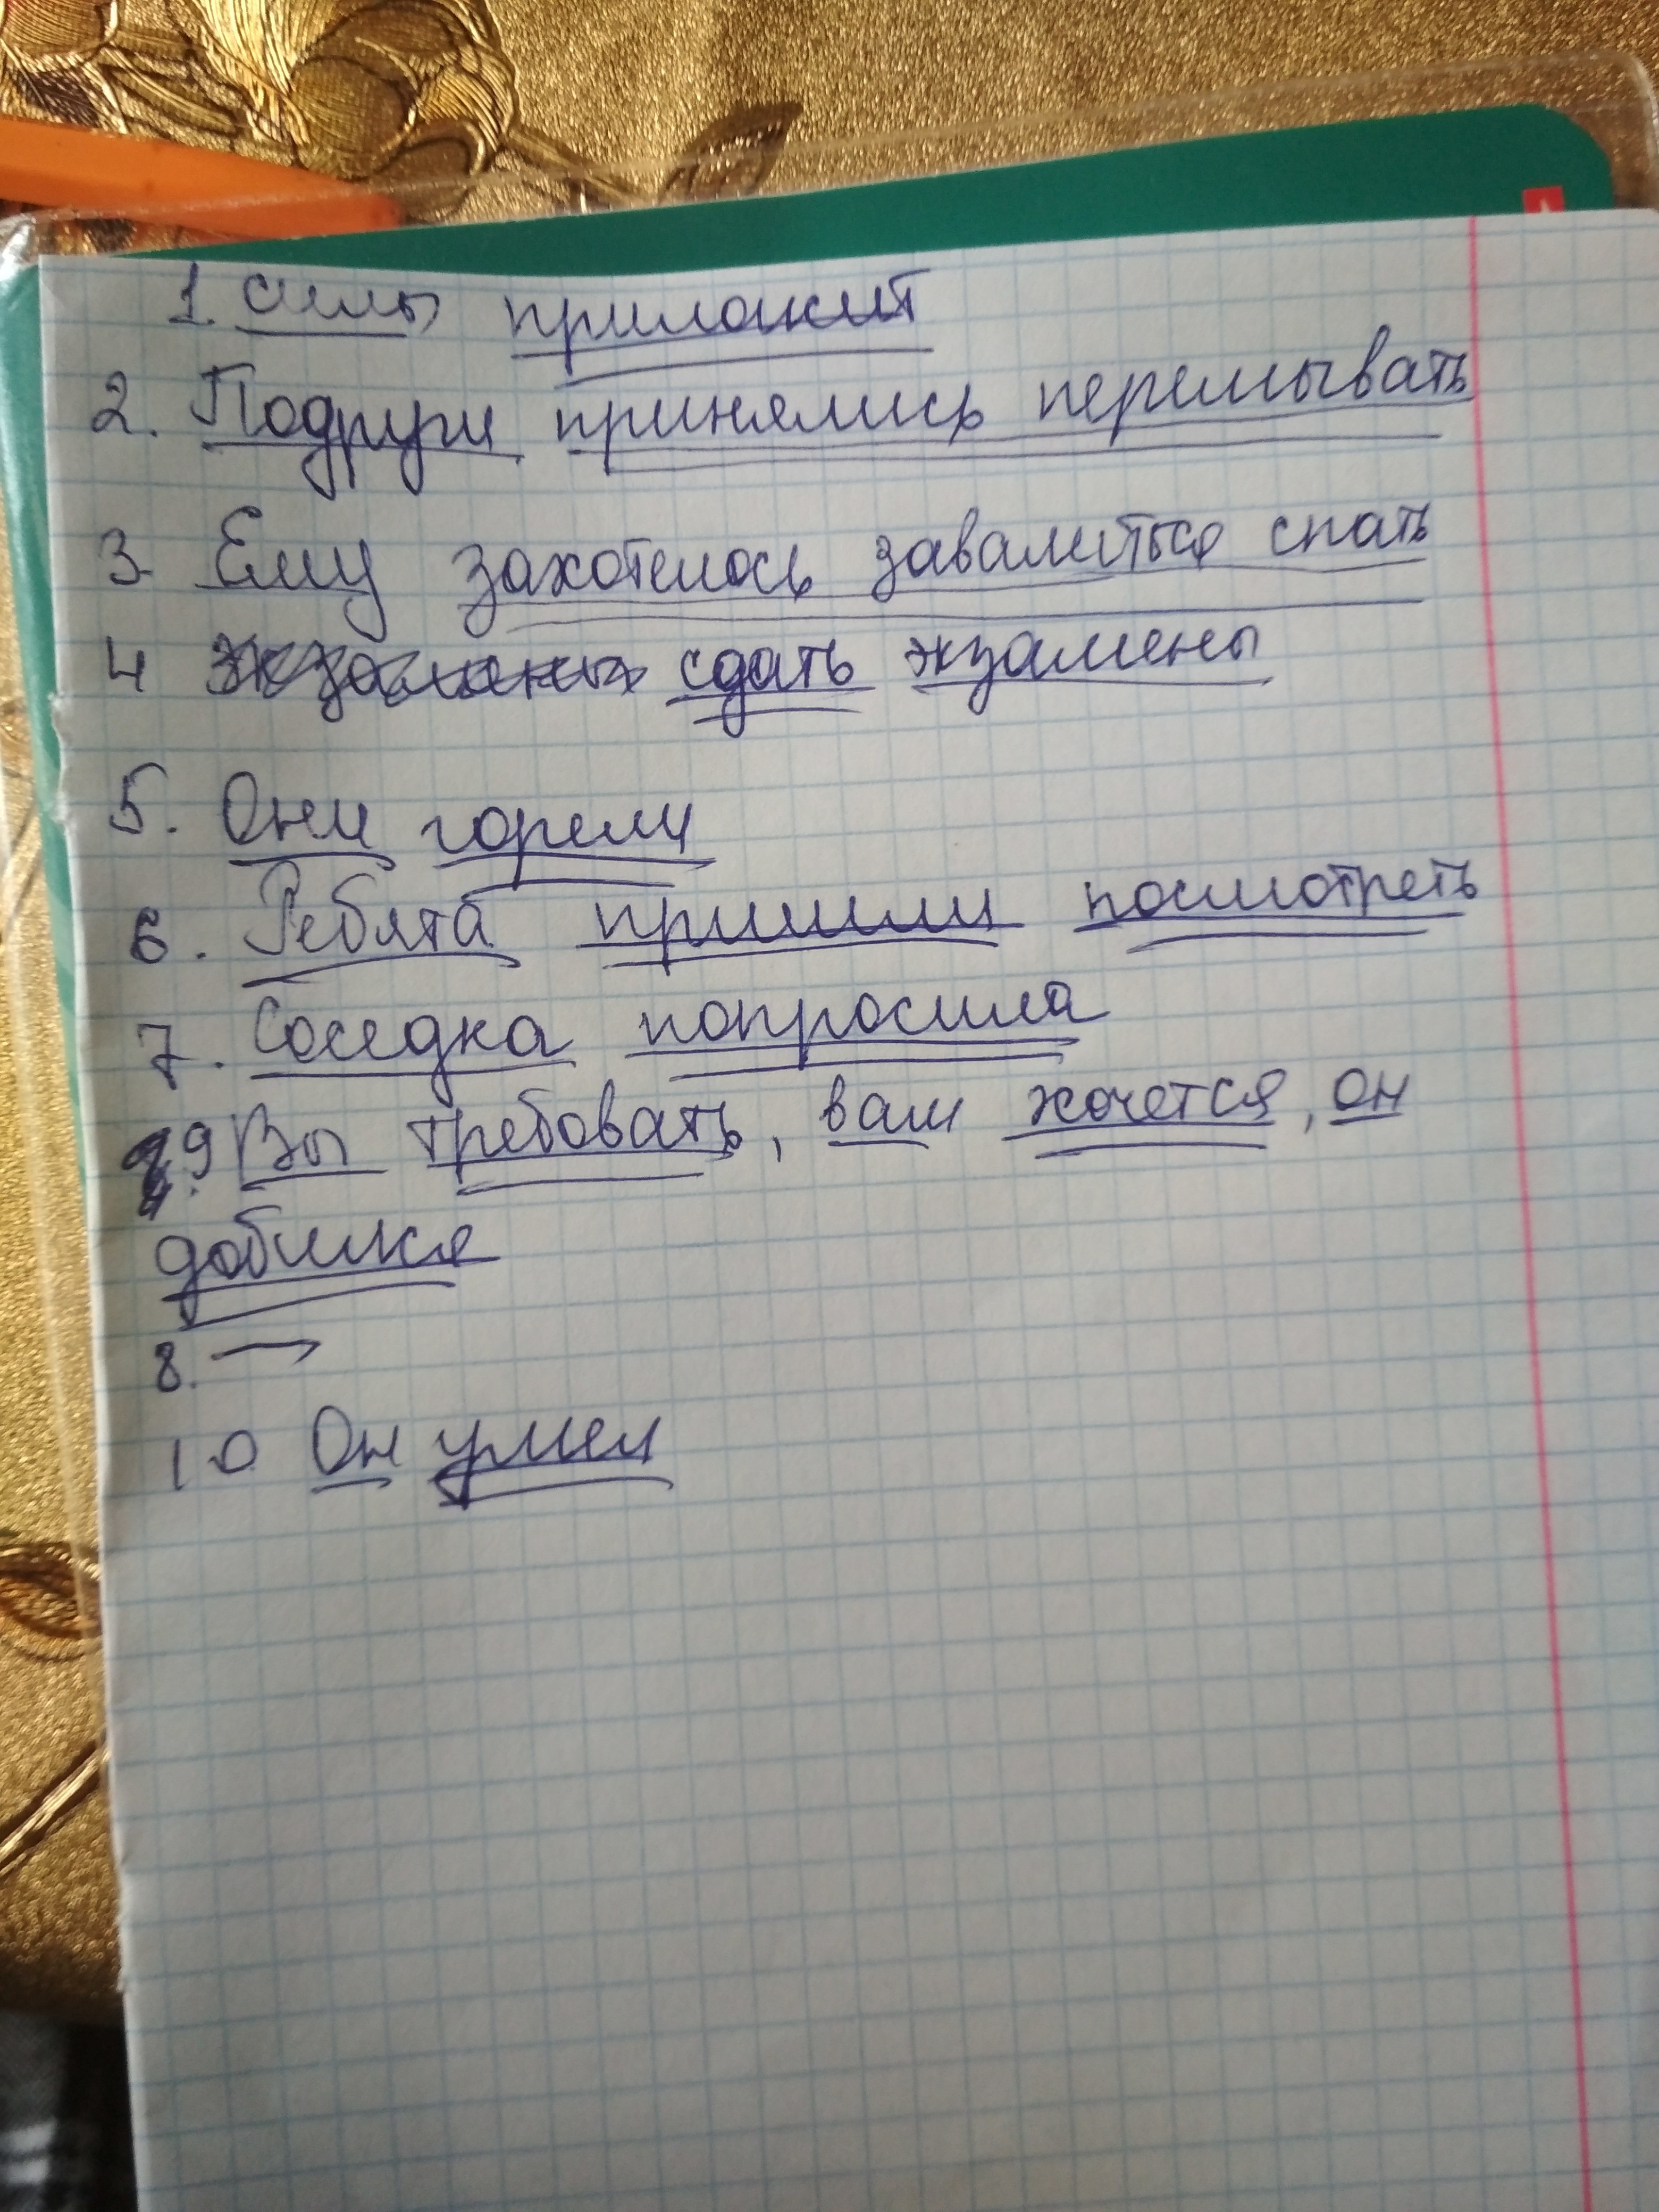 1. силы приложит
2. Подруги принялись перемывать
3 Ему захотелось завалиться спать
4 сдать экзамены
5. Они горели
6. Ребята пришли посмотреть
7. Соседка попросила
9 Вы требовать, вам хочется, он
добился
8. —
10 Он умел